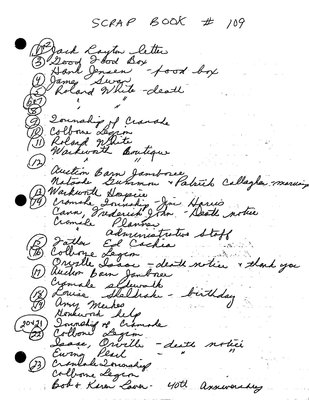 SCRAP BOOK # 109
1+2 Jack Layton letter
3 Good Food Box
Hank Jensen - food box
4 James Swan
5 Roland White - death
6+7 " "
8
9 Township of Cramahe
10 Colborne Legion
11 Roland White
Warkworth Boutique
12 "
Auction Barn Jamboree
Natasde Gummon & Patrick Callagher marriage
13 Warkworth Hospice
14 Cramahe Township - Jim Harris
Cann, Frederick John - Death notice
Cramahe Planner
" Administrative Staff
15 Father Ed Cachia
16 Colborne Legion
Orville Isaac - death notice & thank you
17 Auction Barn Jamboree
Cramahe sidewalk
18 Louise - birthday
19 Amy
Homework help
20+21 Township of Cramahe
22 Colborne Legion
Isaac, Orville - death notice
Ewing Pearl - " "
23 Cramahe Township
Colborne Legion
Bob & Karen - 40th Anniversary